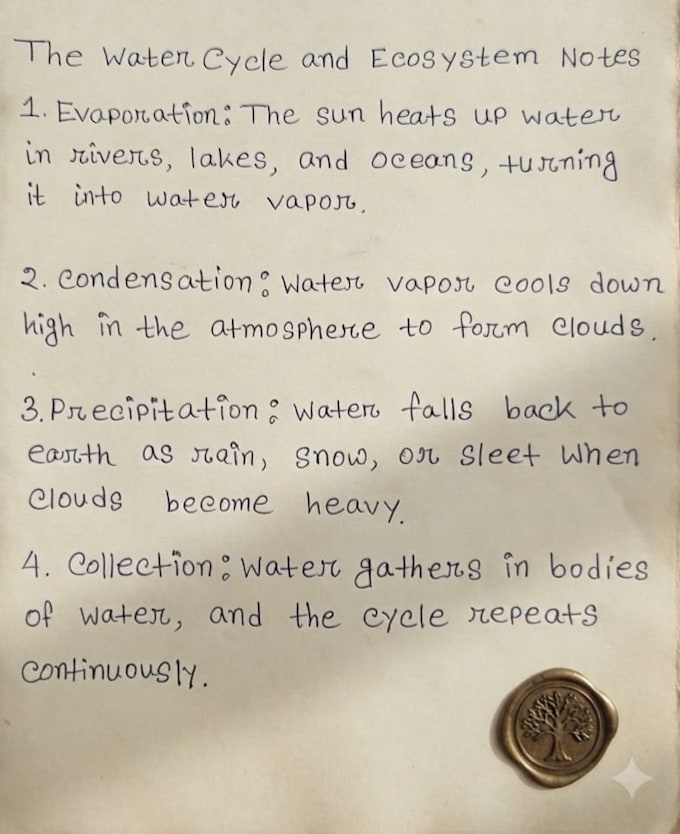 The Water Cycle and Ecosystem Notes
1. Evaporation: The sun heats up water
in rivers, lakes, and oceans, turning
it into water vapor.
2. Condensation: Water vapor cools down
high in the atmosphere to form clouds.
3. Precipitation: Water falls back to
earth as rain, snow, or sleet when
clouds become heavy.
4. Collection: Water gathers in bodies
of water, and the cycle repeats
continuously.